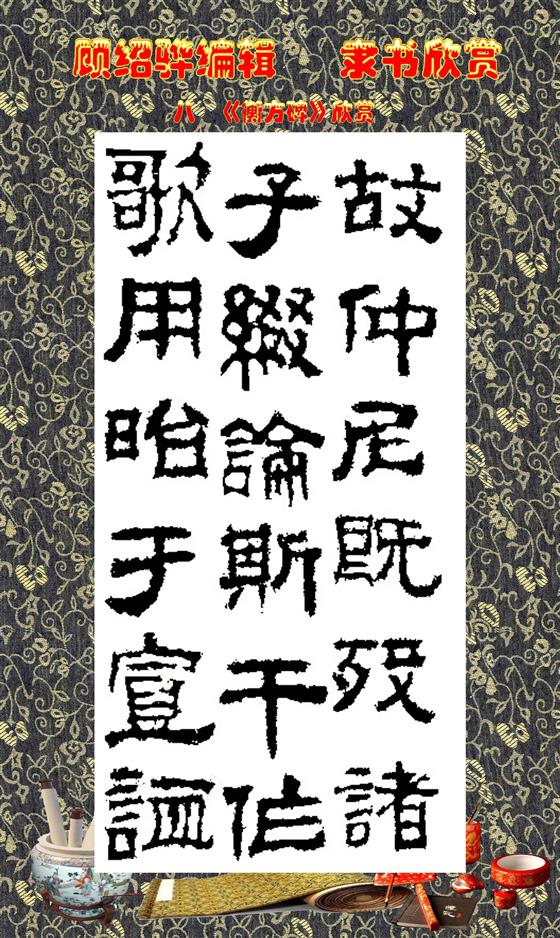 顾绍骅编辑 隶书欣赏
八 《衡方碑》欣赏
故仲尼既殁諸
子綴論斯干作
歌用昭于宣謚